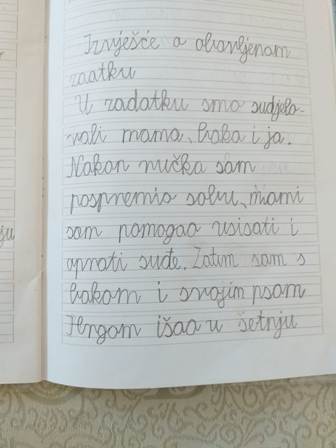 Izvješće o obavljenom
zaatku
U zadatku smo sudjelo-
vali mama, baka i ja.
Nakon ručka sam
pospremio sobu, mami
sam pomogao usisati i
oprati suđe. Zatim sam s
bakom i svojim psom
Hrgom išao u šetnju